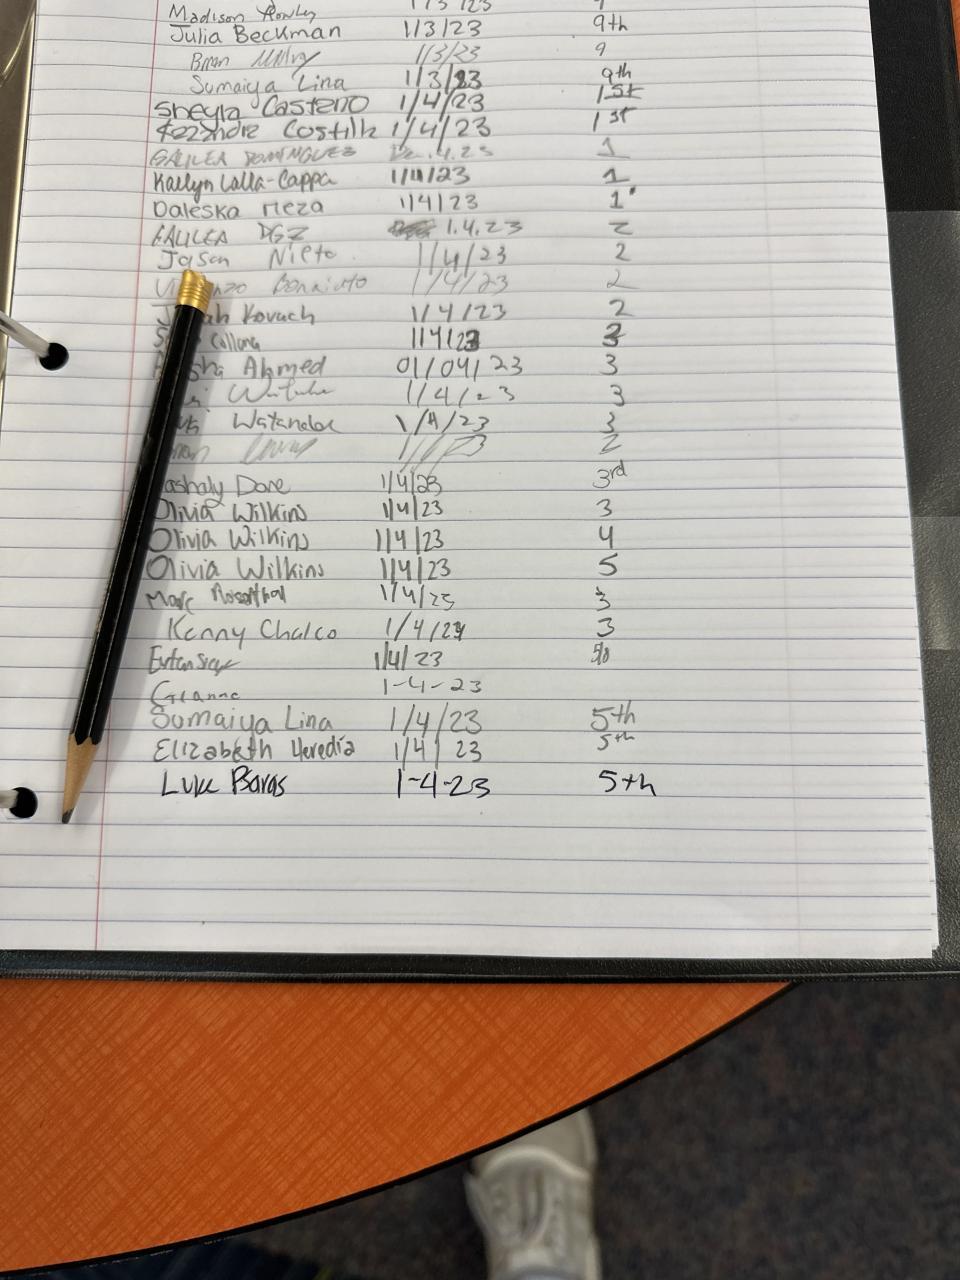 Madison Rowley 1/3/23
Julia Beckman 1/3/23 9th
Brian 1/3/23 9
Sumaiya Lina 1/3/23 9th
Sheyla Casterro 1/4/23 1st
Costilk 1/4/23 1st
GALILEA DOMINGUEZ 1
Kaelyn Lalla-Cappa 1/4/23 1
Daleska Meza 1/4/23 1
GALILEA DGZ 1.4.23 2
Jason Nieto 1/4/23 2
1/4/23 2
Kovach 1/4/23 2
1/4/23 3
Ahmed 01/04/23 3
1/4/23 3
Watanabe 1/4/23 3
2
Dore 1/4/23 3rd
Olivia Wilkins 1/4/23 3
Olivia Wilkins 1/4/23 4
Olivia Wilkins 1/4/23 5
Marc Rosenthal 1/4/23 3
Kenny Chalco 1/4/23 3
1/4/23
Gianna 1-4-23
Sumaiya Lina 1/4/23 5th
Elizabeth Heredia 1/4/23 5th
Luke 1-4-23 5th